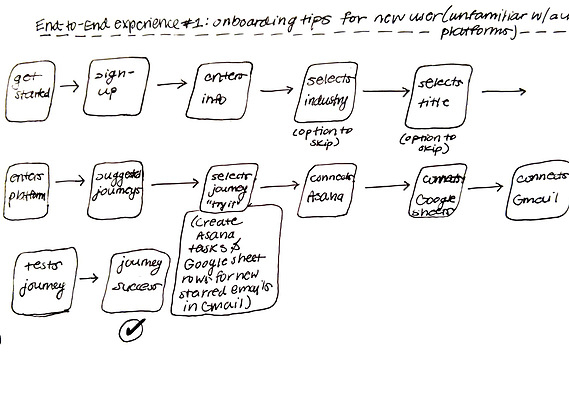 End-to-End experience #1: onboarding tips for new user (unfamiliar w/ au
platforms)
get
started
sign-
up
enters
info
selects
industry
(option to
skip)
selects
title
(option to
skip)
enters
platform
suggested
journeys
selects
journey
"try it"
(create
Asana
tasks &
Google sheet
rows for new
starred emails
in Gmail)
connects
Asana
connects
Google
sheets
connects
Gmail
tests
journey
journey
success